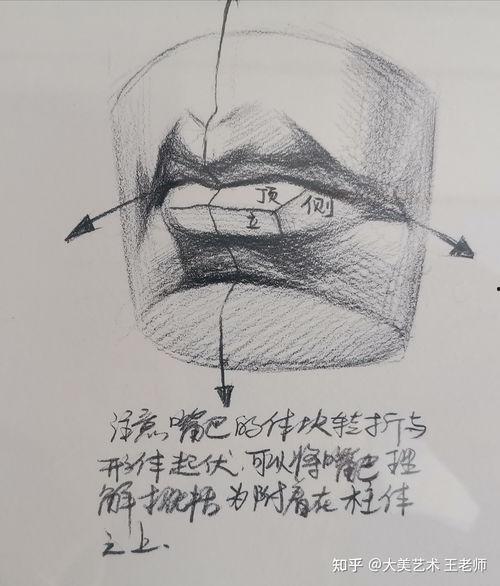 顶
侧
立
注意嘴巴的体块转折与
形体起伏,可以将嘴巴理
解概括为附着在柱体
之上.
知乎 @大美艺术 王老师